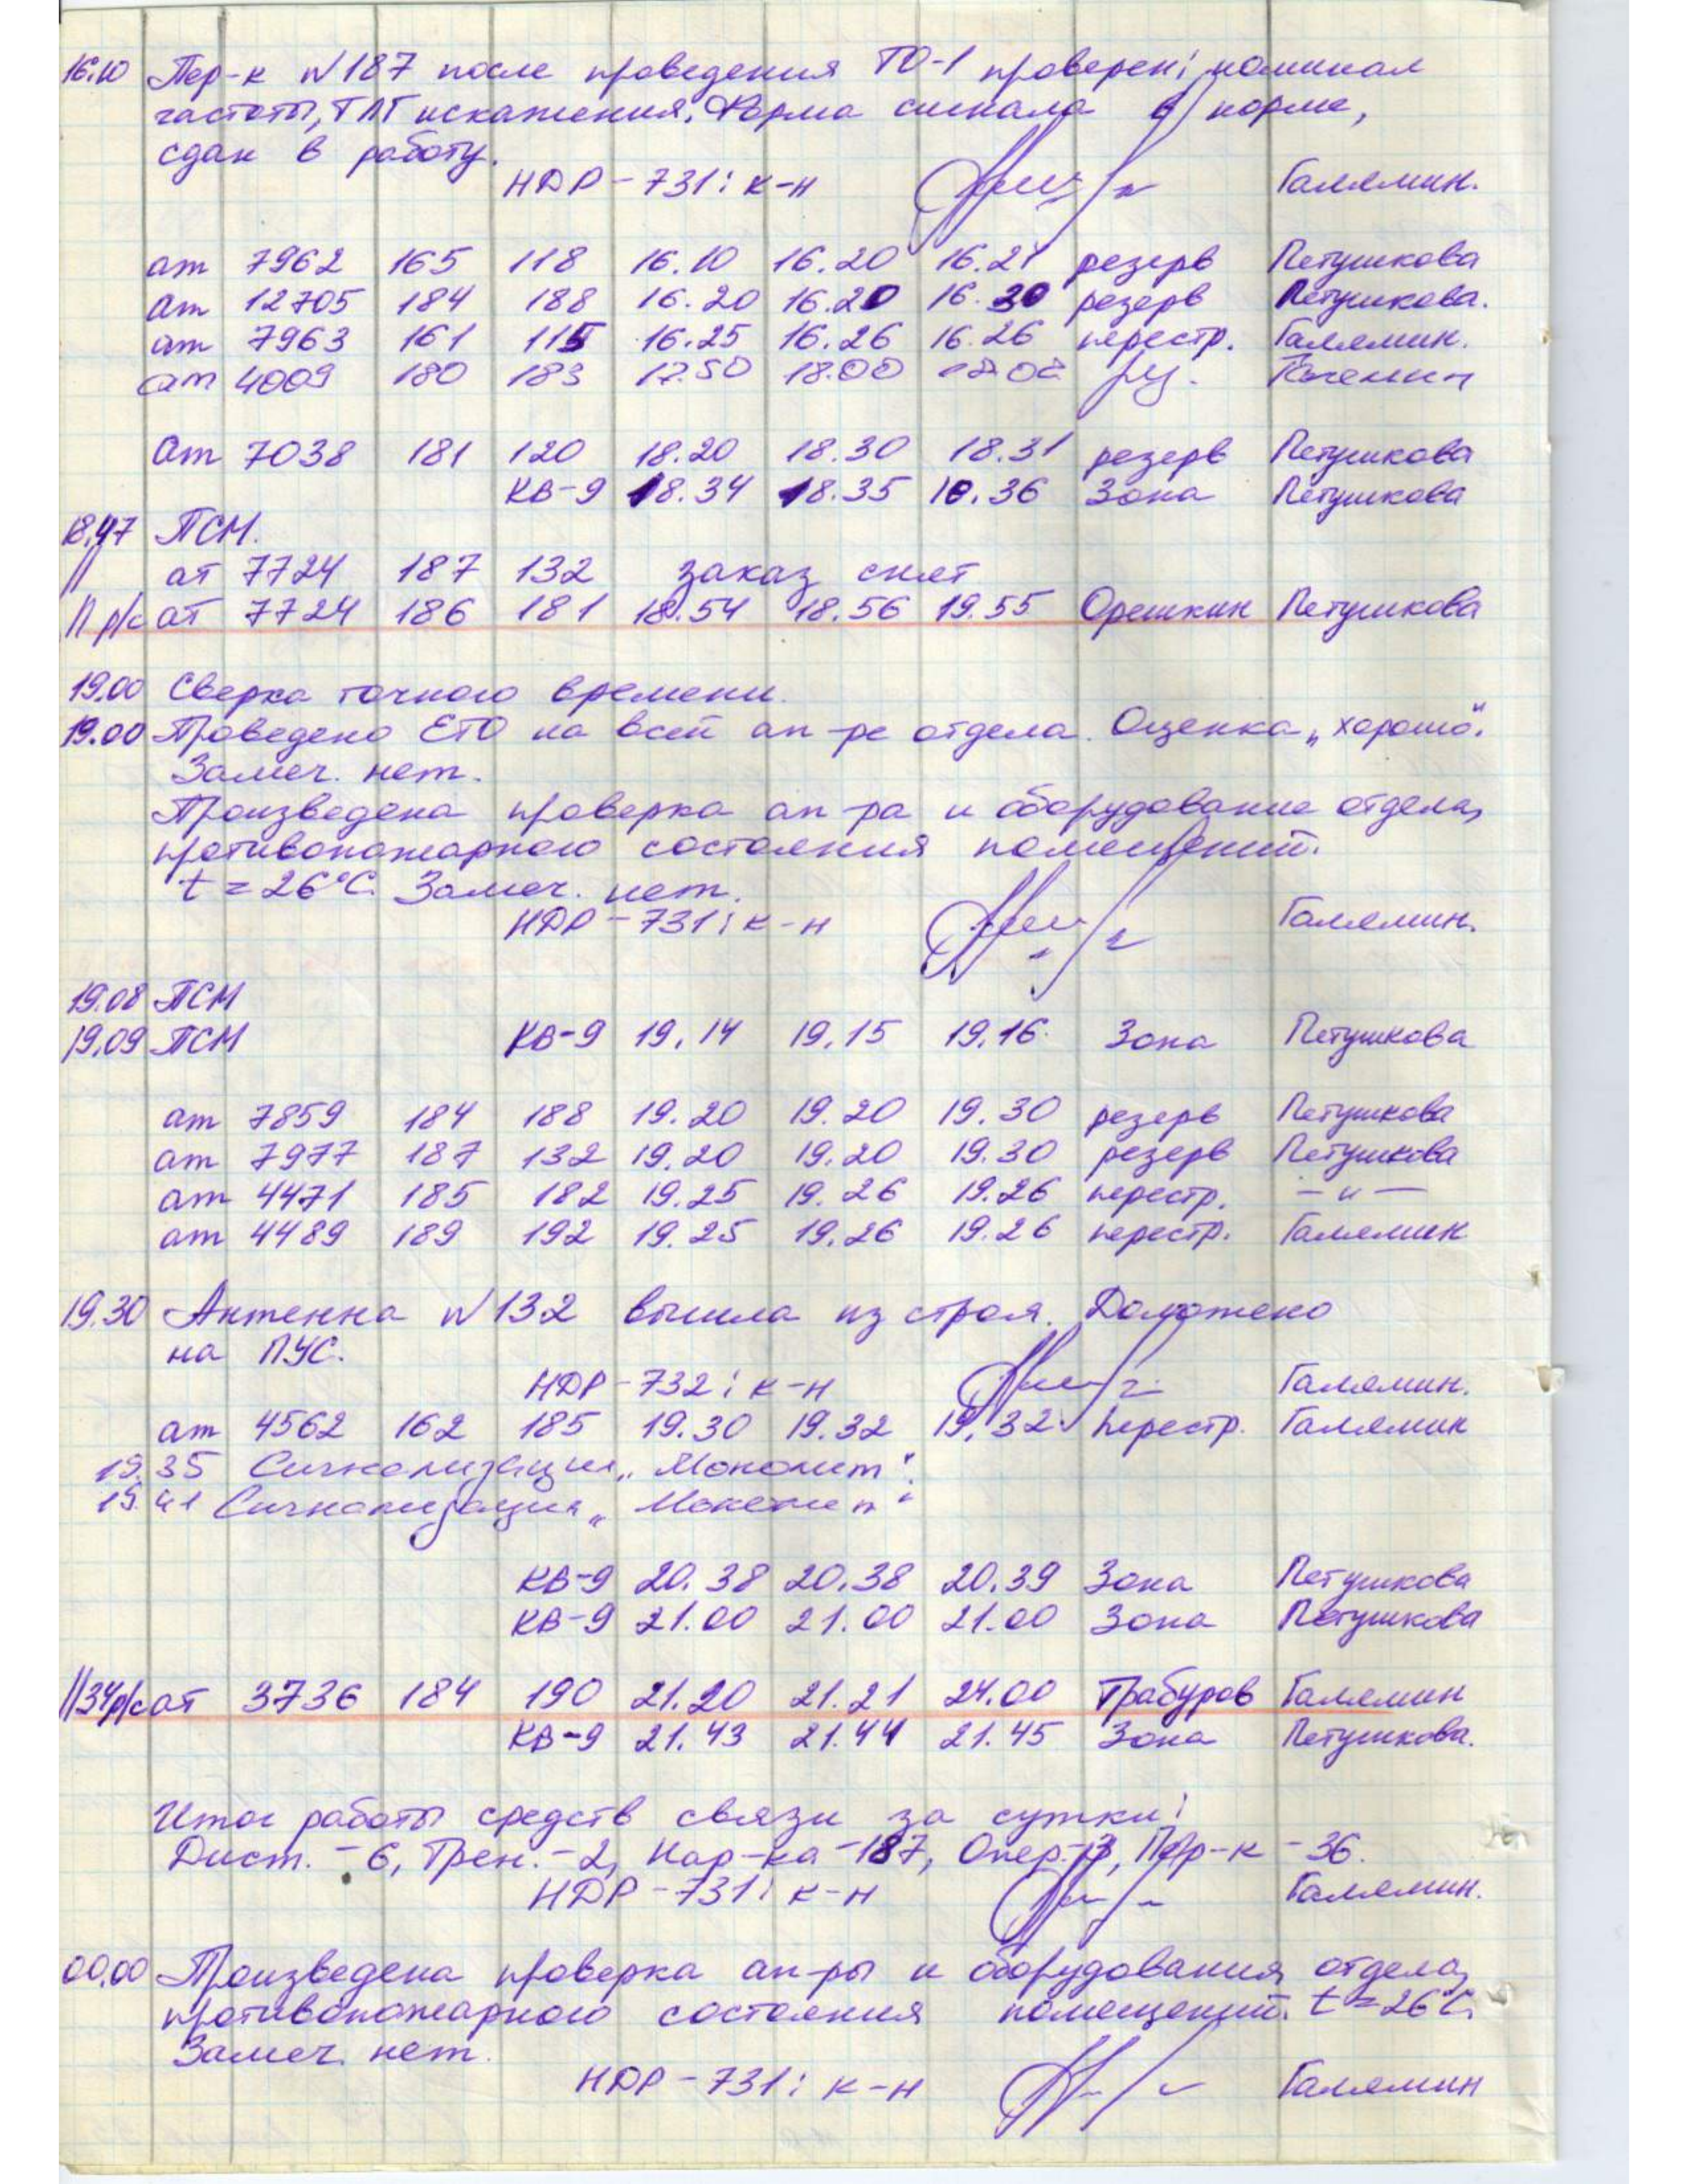 16.10 Пер-к N187 после проведения ТО-1 проверен: номинал
частоты, ТЛГ искажения, Форма сигнала в норме,
сдан в работу.
НДР-731: к-н Галямин.
ат 7962 165 118 16.10 16.20 16.21 резерв Петушкова
ат 12705 184 188 16.20 16.20 16.30 резерв Петушкова.
ат 7963 161 115 16.25 16.26 16.26 перестр. Галямин.
ат 4009 180 183 17.50 18.00
ат 7038 181 120 18.20 18.30 18.31 резерв Петушкова
КВ-9 18.34 18.35 18.36 Зона Петушкова
18.47 ПСМ.
// ат 7724 187 132 заказ снят
11 р/с ат 7724 186 181 18.54 18.56 19.55 Орешкин Петушкова
19.00 Сверка точного времени.
19.00 Проведено ЕТО на всей ап-ре отдела. Оценка „хорошо".
Замеч. нет.
Произведена проверка ап-ра и оборудование отдела,
противопожарного состояния помещений.
t = 26°C. Замеч. нет.
НДР-731: к-н Галямин.
19.08 ПСМ
19.09 ПСМ КВ-9 19.14 19.15 19.16 Зона Петушкова
ат 7859 184 188 19.20 19.20 19.30 резерв Петушкова
ат 7977 187 132 19.20 19.20 19.30 резерв Петушкова
ат 4471 185 182 19.25 19.26 19.26 перестр. —"—
ат 4489 189 192 19.25 19.26 19.26 перестр. Галямин
19.30 Антенна N132 вышла из строя. Доложено
на ПУС.
НДР-732: к-н Галямин.
ат 4562 162 185 19.30 19.32 19.32 перестр. Галямин
19.35 Сигнализация „Монолит".
19.41 Сигнализация „Монолит".
КВ-9 20.38 20.38 20.39 Зона Петушкова
КВ-9 21.00 21.00 21.00 Зона Петушкова
1134р/с ат 3736 184 190 21.20 21.21 24.00 Трабуров Галямин
КВ-9 21.43 21.44 21.45 Зона Петушкова.
Итог работы средств связи за сутки:
Дист. - 6, Трен. - 2, Нар-ка - 187, Опер.-3, Пер-к - 36.
НДР-731: к-н Галямин.
00.00 Произведена проверка ап-ры и оборудования отдела,
противопожарного состояния помещений. t = 26°C.
Замеч. нет.
НДР-731: к-н Галямин